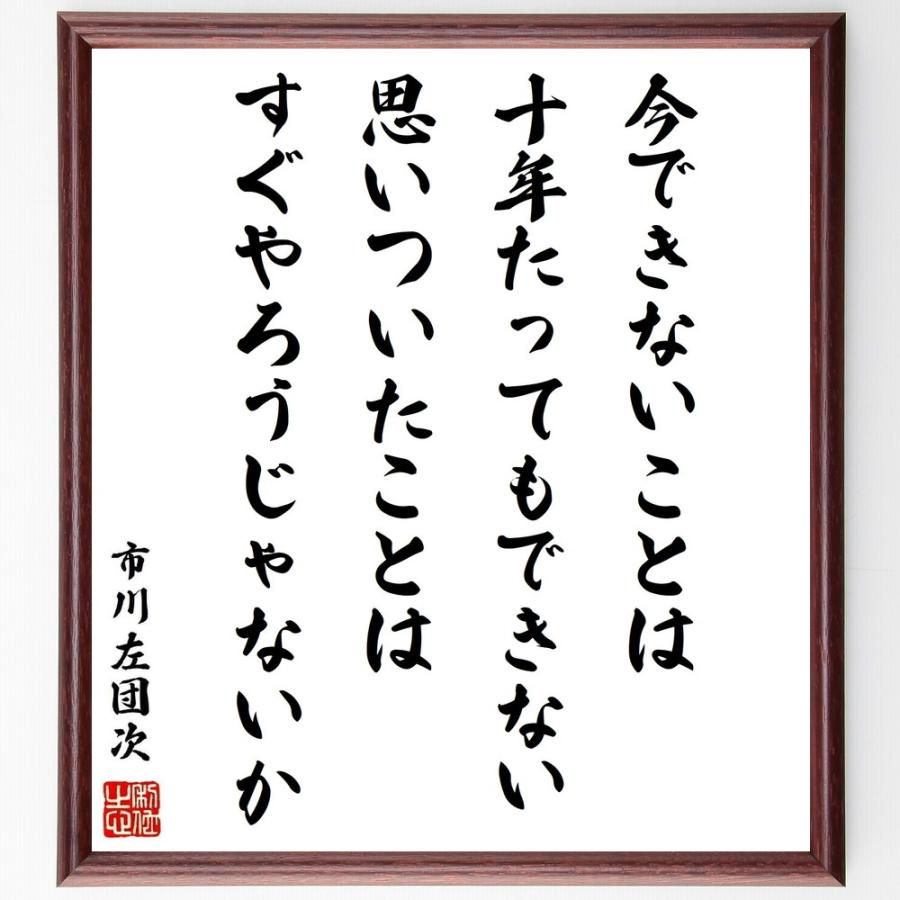 今できないことは
十年たってもできない
思いついたことは
すぐやろうじゃないか
市川左団次